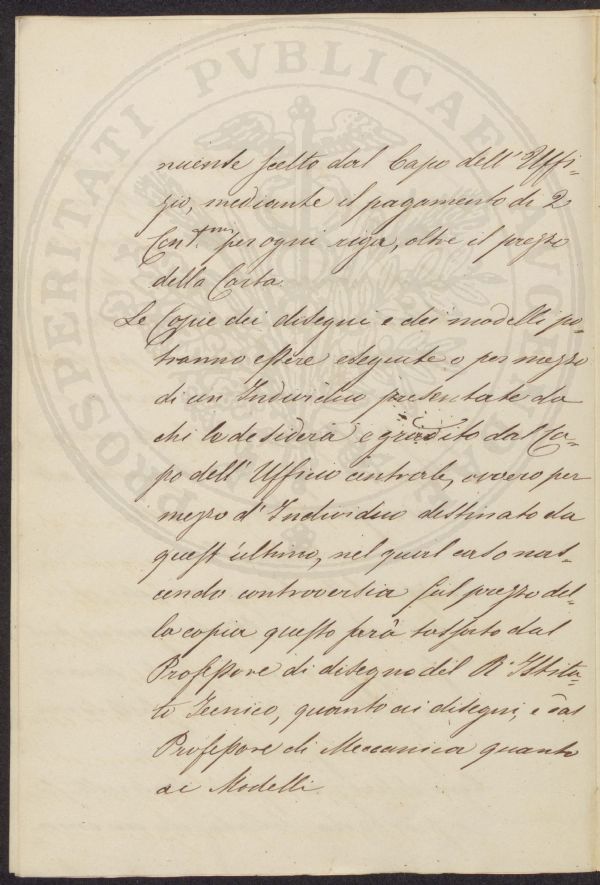 PROSPERITATI PVBLICAE AVGENDAE
nuente scelto dal Capo dell' Uffi-
zio, mediante il pagamento di 2
Cent.mi per ogni riga, oltre il prezzo
della Carta
Le Copie dei disegni e dei modelli po-
tranno essere eseguite o per mezzo
di un Individuo presentate da
chi le desidera e gradito dal Ca-
po dell' Ufficio centrale, ovvero per
mezzo d' Individuo destinato da
quest' ultimo, nel qual caso nas-
cendo controversia sul prezzo del-
la copia questo sarà tassato dal
Professore di disegno del R.o Istitu-
to Tecnico, quanto ai disegni, e dal
Professore di Meccanica quanto
ai Modelli.